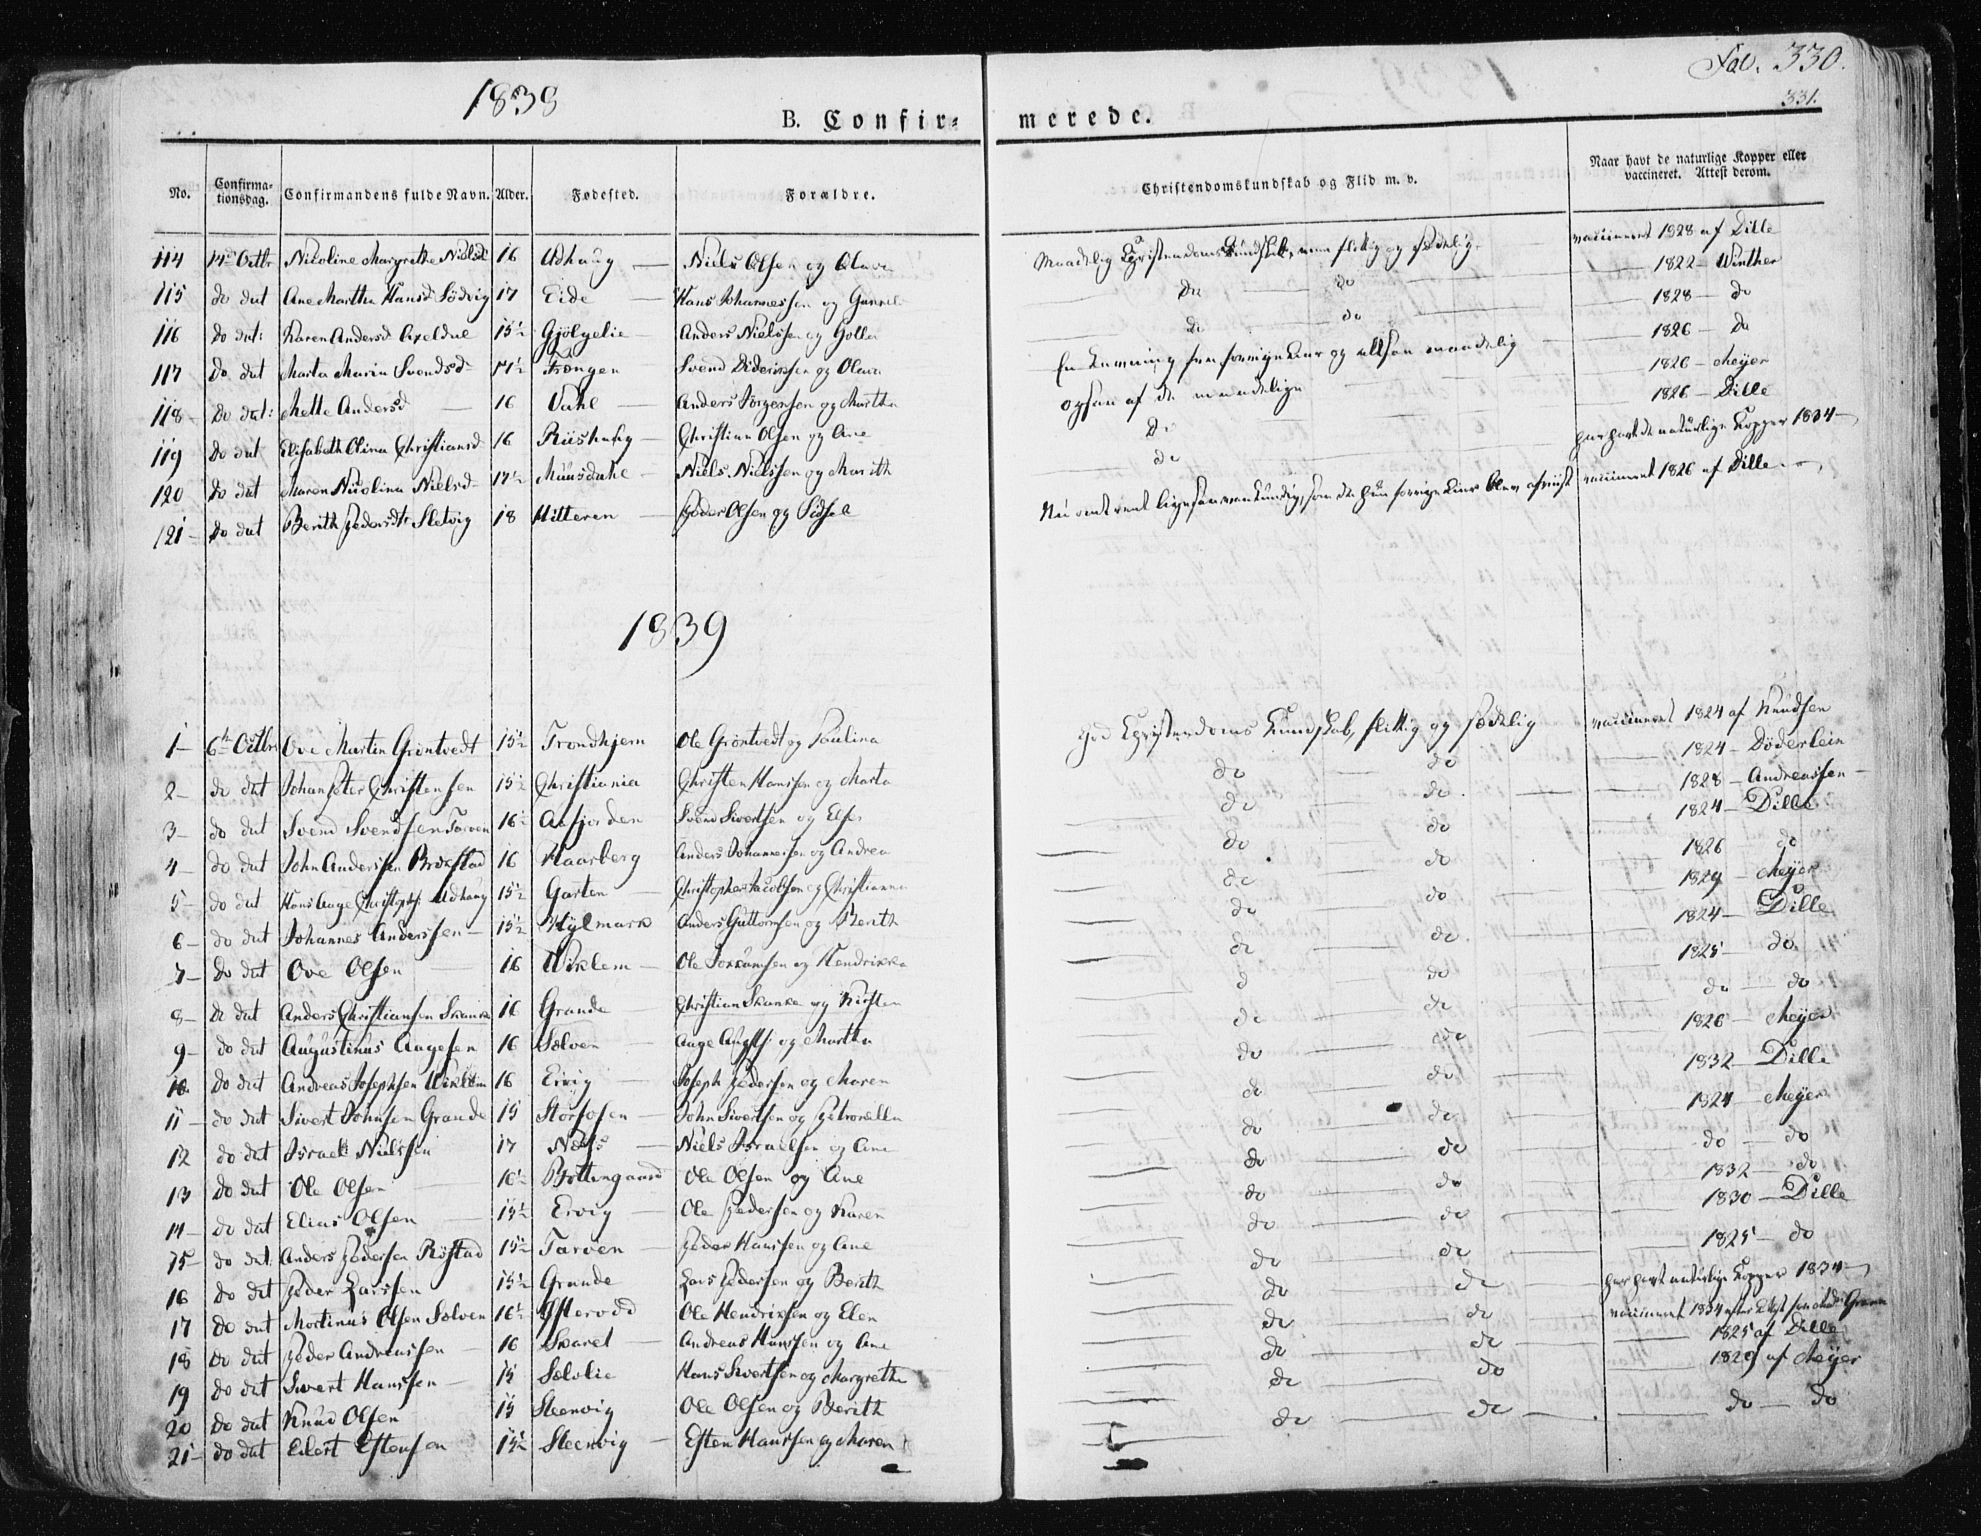 1838
Fol. 330.
331.
B. Confir= merede.
No. Confirma-tionsdag. Confirmandens fulde Navn. Alder. Fødested. Forældre. Christendomskundskab og Flid m. v. Naar havt de naturlige Kopper eller vaccineret. Attest derom.
114 14de Octbr Nicoline Margrethe Nielsd 16 Udhaug — Niels Olsen og Olava Maadelig Christendoms Kundskab, men flittig og sædelig vaccineret 1828 af Dille
115 do dat Ane Martha Hansd Sødvig 17 Eide — Hans Johannessen og Gunnil do do 1822 — Winther
116 do dat: Karen Andersd Axeldal 15½ Gjölgelie — Anders Nielssen og Golla do do 1828 — do
117 do dat Marta Maria Svendsd 17½ Frengen — Svend Diderikssen og Olava 1826 — do
118 — do dat: Mette Andersd — 16 Vahl — Anders Jørgensen og Martha 1826 — Meyer
119 do dat Elisabeth Olina Christiansd 16 Riishaug — Christian Olsen og Ane do 1826 — Dille
120 do dat Maren Nicolina Nielsd 17½ Muusdahl — Niels Nielssen og Marith do har havt de naturlige Kopper 1834
121 — do dat Berith Pedersdtr Sletvig 18 Hitteren — Peder Olsen og Sidsel vaccineret 1826 af Dille
1839
1 — 6te Octbr Ove Martin Grøntvedt 15½ Trondhjem Ole Grøntvedt og Paulina God Christendoms Kundskab, flittig og sædelig vaccineret 1824 af Knudsen
2 — do dat Johan Peter Christensen 15½ Christiania Christen Hanssen og Marta do do 1824 — Döderlein
3 — do dat Svend Svendsen Tarven 16½ Aafjorden Svend Sivertsen og Elsen do do 1828 — Andreassen
4 — do dat John Anderssen Brøkstad 16 Haarberg Anders Johannessen og Andrea do do 1824 — Dille
5 — do dat Hans Aage Christophs Udhaug 15½ Garten — Christopher Jacobsen og Christianna do do 1826 do
6 — do dat Johannes Anderssen — 15½ Hylmark Anders Guttormsen og Berith do do 1829 — Meyer
7 — do dat Ove Olsen 16 Wiklem — Ole Torkunssen og Hendrikka do do 1824 — Dille
8 — do dat Anders Christiansen Skanke 16 Grande — Christian Skanke og Kirsten do do 1825 — do
9 — do dat Augustinus Aagesen 16 Sølven — Aage Augsts: og Martha do do do — do
10 do dat Andreas Josephsen Wiklem 16 Ervig — Joseph Pedersen og Maren do do 1826 — Meyer
11 — do dat Sivert Johnsen Grande 15 Storfosen — John Sivertsen og Petronella do do 1832 — Dille
12 do dat Israel Nielssen 17 Næss — Niels Israelsen og Ane do do 1824 — Meyer
13 do dat Ole Olsen — 16½ Bottengaard Ole Olsen og Ane do do do — do
14 — do dat Elias Olsen — 15½ Ervig — Ole Pedersen og Karen do do 1832 — do
15 — do dat: Anders Pedersen Röstad 15½ Tarven — Peder Hanssen og Ane do do 1830 — Dille
16 do dat Peder Larssen 15½ Grande Lars Pedersen og Berith do do 1825 — do
17 do dat Martinus Olsen Solven 16½ Østeraad Ole Hendriksen og Elen do do har havt naturlige Kopper 1834
18 do dat Peder Andreassen — 16 Skaret — Andreas Hanssen og Ane do do vaccineret 1834
19 do dat Sivert Hanssen — 15 Sølvlie Hans Sivertsen og Margrethe do do 1825 af Dille
20 do dat Knud Olsen 15 Steenvig — Ole Olsen og Berith do do 1829 af Meyer
21 — do dat Eilert Estensen 15½ Steenvig — Esten Hanssen og Maren do do do — do